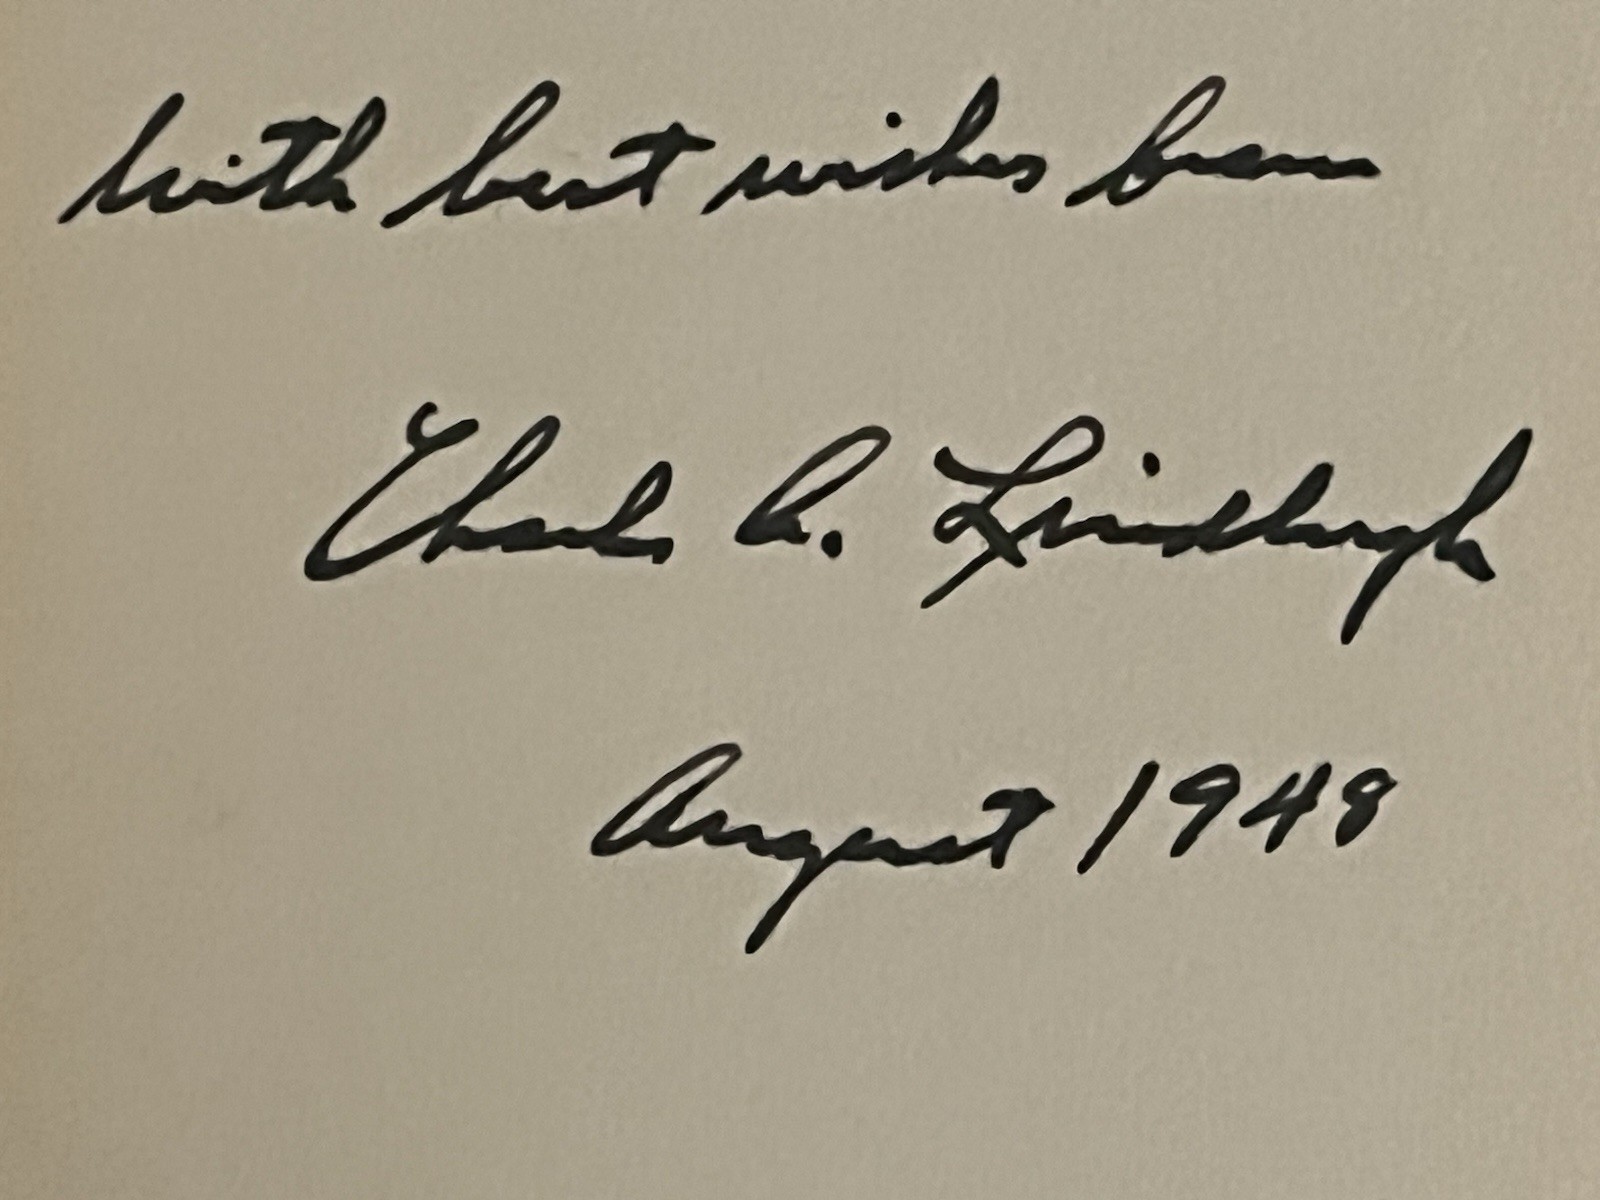 with best wishes from
Charles A. Lindbergh
August 1948